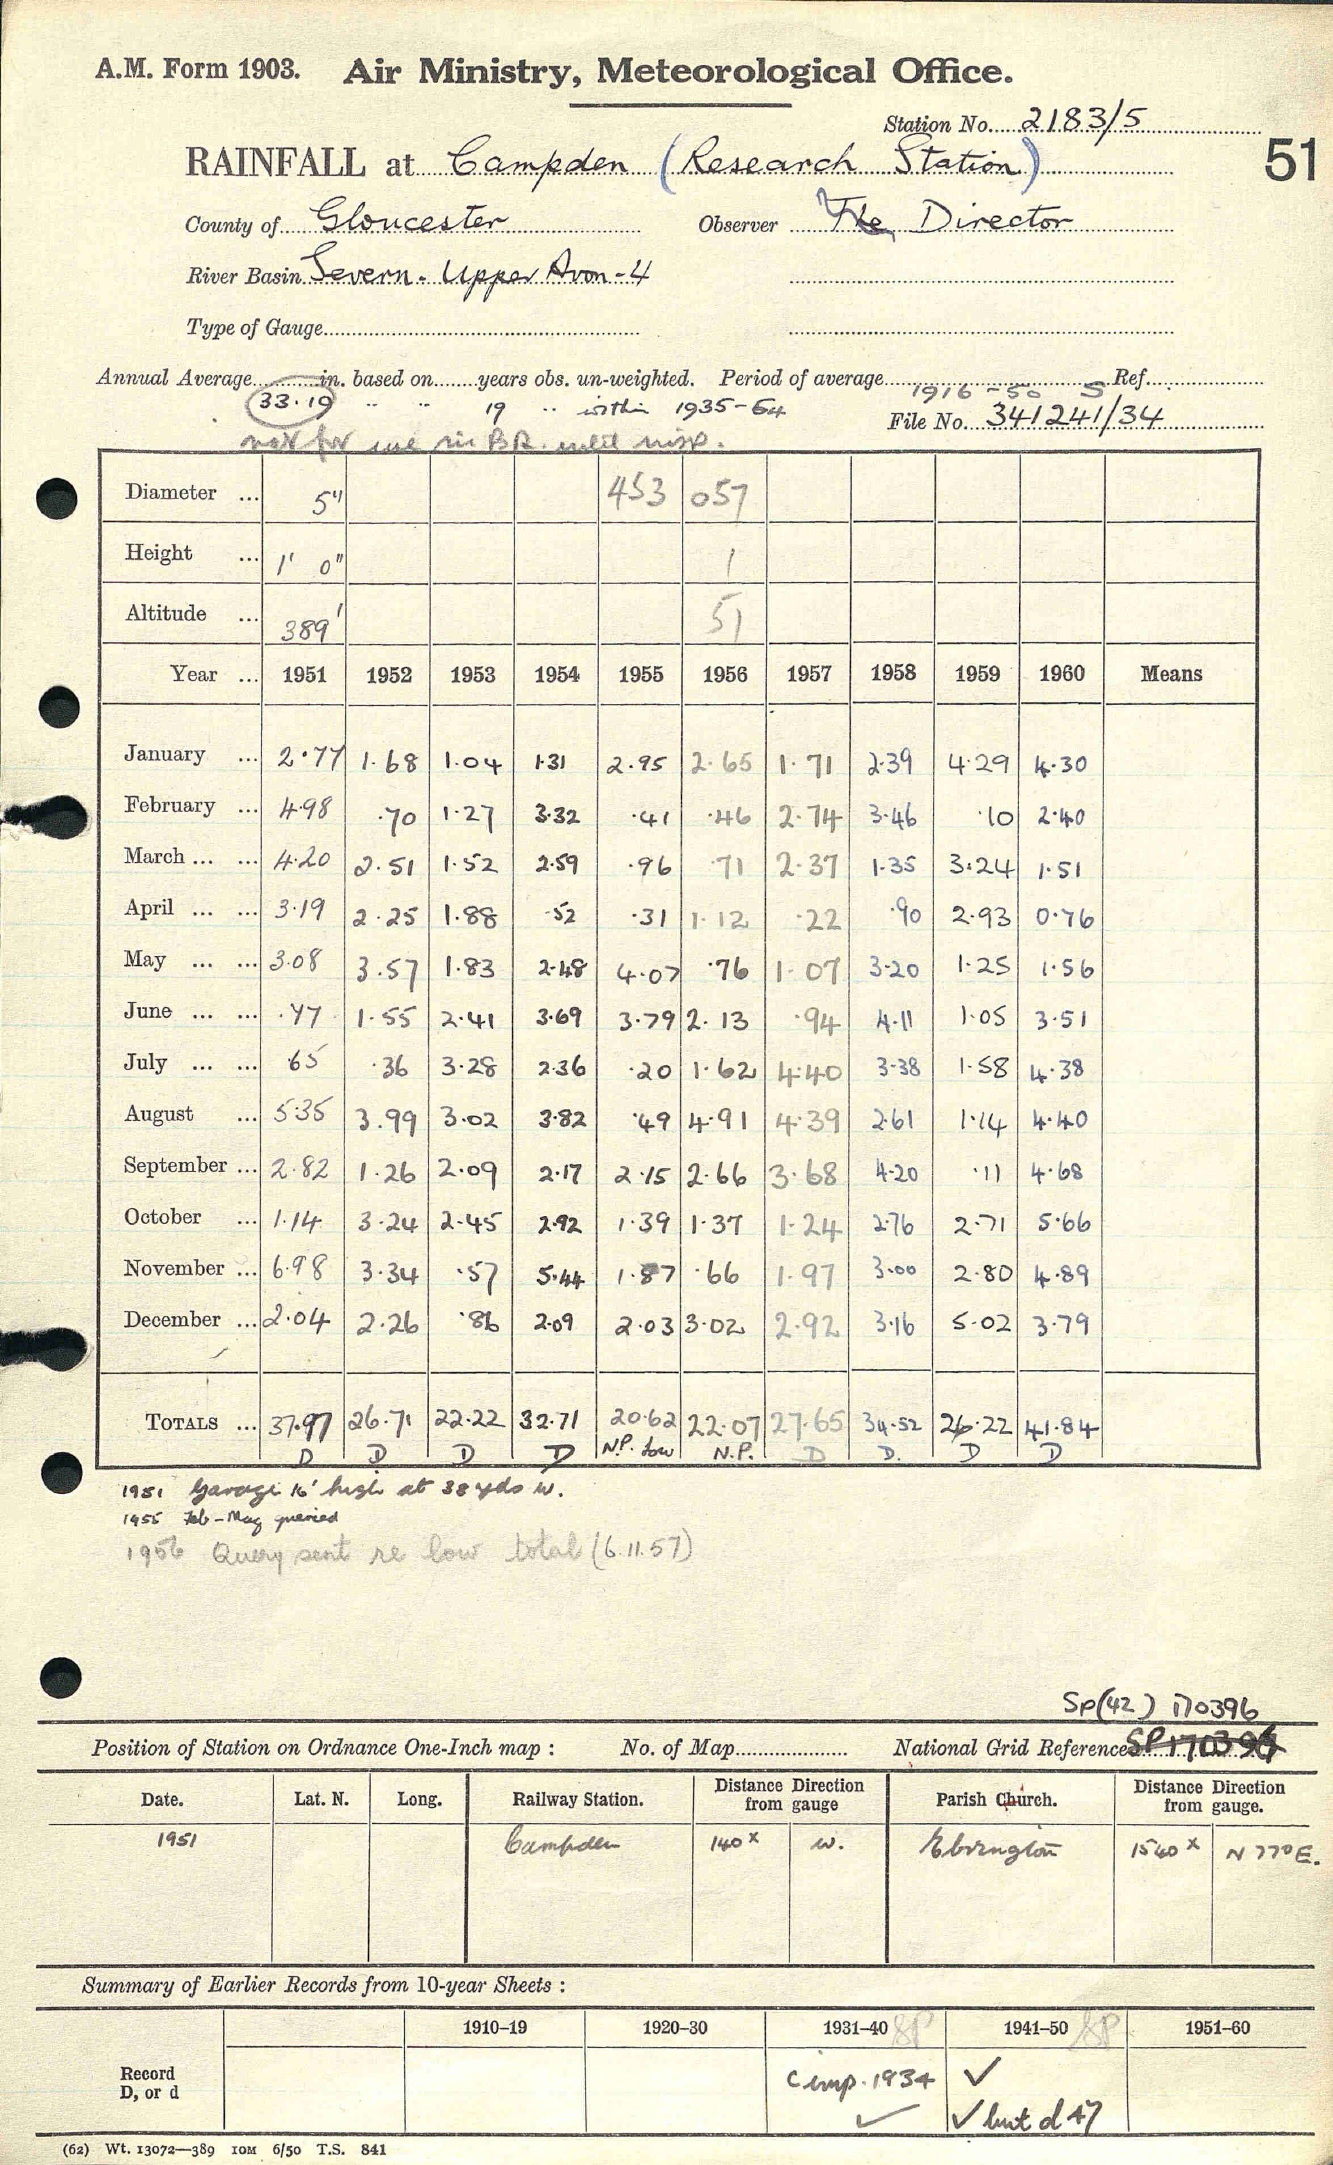 A.M. Form 1903. Air Ministry, Meteorological Office.
Station No. 2183/5
51
RAINFALL at Campden (Research Station)
County of Gloucester Observer The Director
River Basin Severn - Upper Avon - 4
Type of Gauge
Annual Average in. based on years obs. un-weighted. Period of average 1916-50 S Ref.
33.19 " " 19 " within 1935-54
File No. 341241/34
not for use in B.R. until insp.
Diameter ... 5" 453 057
Height ... 1' 0" 1
Altitude ... 389' 51
Year ... 1951 1952 1953 1954 1955 1956 1957 1958 1959 1960 Means
January ... 2.77 1.68 1.04 1.31 2.95 2.65 1.71 2.39 4.29 4.30
February ... 4.98 .70 1.27 3.32 .41 .46 2.74 3.46 .10 2.40
March ... ... 4.20 2.51 1.52 2.59 .96 .71 2.37 1.35 3.24 1.51
April ... ... 3.19 2.25 1.88 .52 .31 1.12 .22 .90 2.93 0.76
May ... ... 3.08 3.57 1.83 2.48 4.07 .76 1.07 3.20 1.25 1.56
June ... ... .77 1.55 2.41 3.69 3.79 2.13 .94 4.11 1.05 3.51
July ... ... .65 .36 3.28 2.36 .20 1.62 4.40 3.38 1.58 4.38
August ... 5.35 3.99 3.02 3.82 .49 4.91 4.39 2.61 1.14 4.40
September ... 2.82 1.26 2.09 2.17 2.15 2.66 3.68 4.20 .11 4.68
October ... 1.14 3.24 2.45 2.92 1.39 1.37 1.24 2.76 2.71 5.66
November ... 6.98 3.34 .57 5.44 1.87 .66 1.97 3.00 2.80 4.89
December ... 2.04 2.26 .86 2.09 2.03 3.02 2.92 3.16 5.02 3.79
TOTALS ... 37.97 26.71 22.22 32.71 20.62 22.07 27.65 34.52 26.22 41.84
D D D D N.P. low N.P. D D. D D
1951 Garage 16' high at 38 yds W.
1955 Feb - May queried
1956 Query sent re low total (6.11.57)
SP(42) 170396
Position of Station on Ordnance One-Inch map : No. of Map National Grid Reference SP 170396
Date. Lat. N. Long. Railway Station. Distance Direction from gauge Parish Church. Distance Direction from gauge.
1951 Campden 140x W. Ebrington 1540x N 77° E.
Summary of Earlier Records from 10-year Sheets :
1910-19 1920-30 1931-40 SP 1941-50 SP 1951-60
Record D, or d
C imp. 1934 ✓
✓ ✓ but d 47
(62) Wt. 13072—389 10M 6/50 T.S. 841